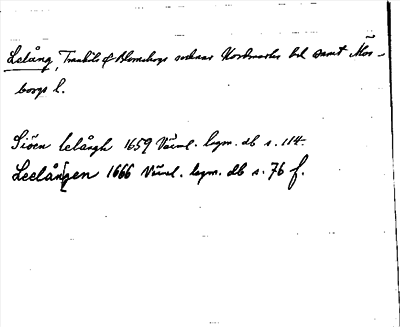 Lelång, Trankils & Blomskogs socknar Nordmarks hd samt Älv-
borgs l.
Siöen lelångh 1659 Värml. legm. db s. 114.
Leelången 1666 Värml. legm. db s. 76 f.